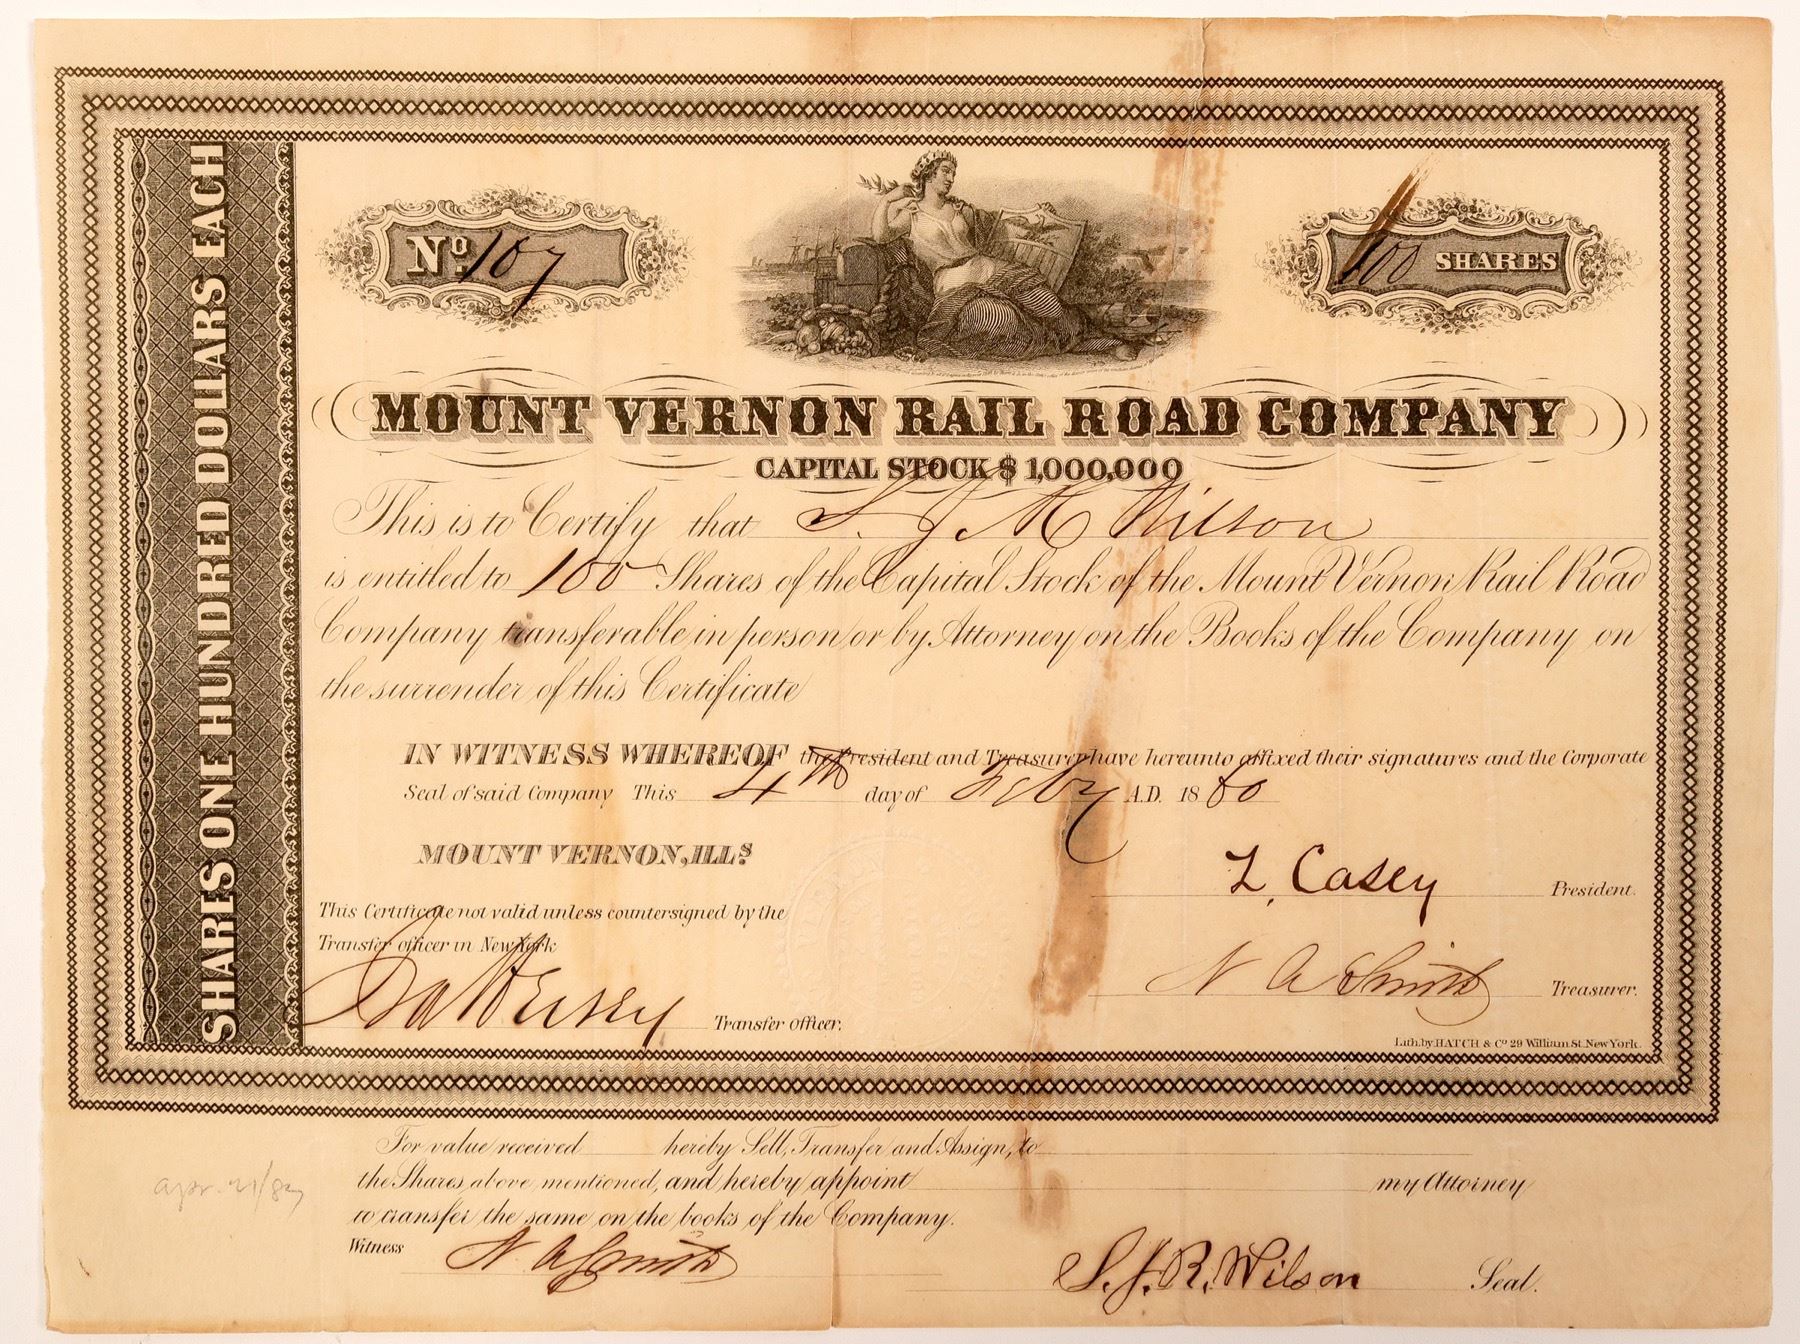 SHARES ONE HUNDRED DOLLARS EACH
No. 107
100 SHARES
MOUNT VERNON RAIL ROAD COMPANY
CAPITAL STOCK $ 1,000,000
This is to Certify that S. J. R. Wilson
is entitled to 100 Shares of the Capital Stock of the Mount Vernon Rail Road
Company transferable in person or by Attorney on the Books of the Company on
the surrender of this Certificate
IN WITNESS WHEREOF the President and Treasurer have hereunto affixed their signatures and the Corporate
Seal of said Company This 4th day of Feby A.D. 1860
MOUNT VERNON, ILLs.
L. Casey President.
This Certificate not valid unless countersigned by the
Transfer officer in New York
N A Smith Treasurer.
Transfer officer.
Lith. by HATCH & Co 29 William St. New York.
For value received hereby Sell, Transfer and Assign, to
the Shares above mentioned, and hereby appoint my Attorney
to transfer the same on the books of the Company.
Witness N A Smith
S. J. R. Wilson Seal.